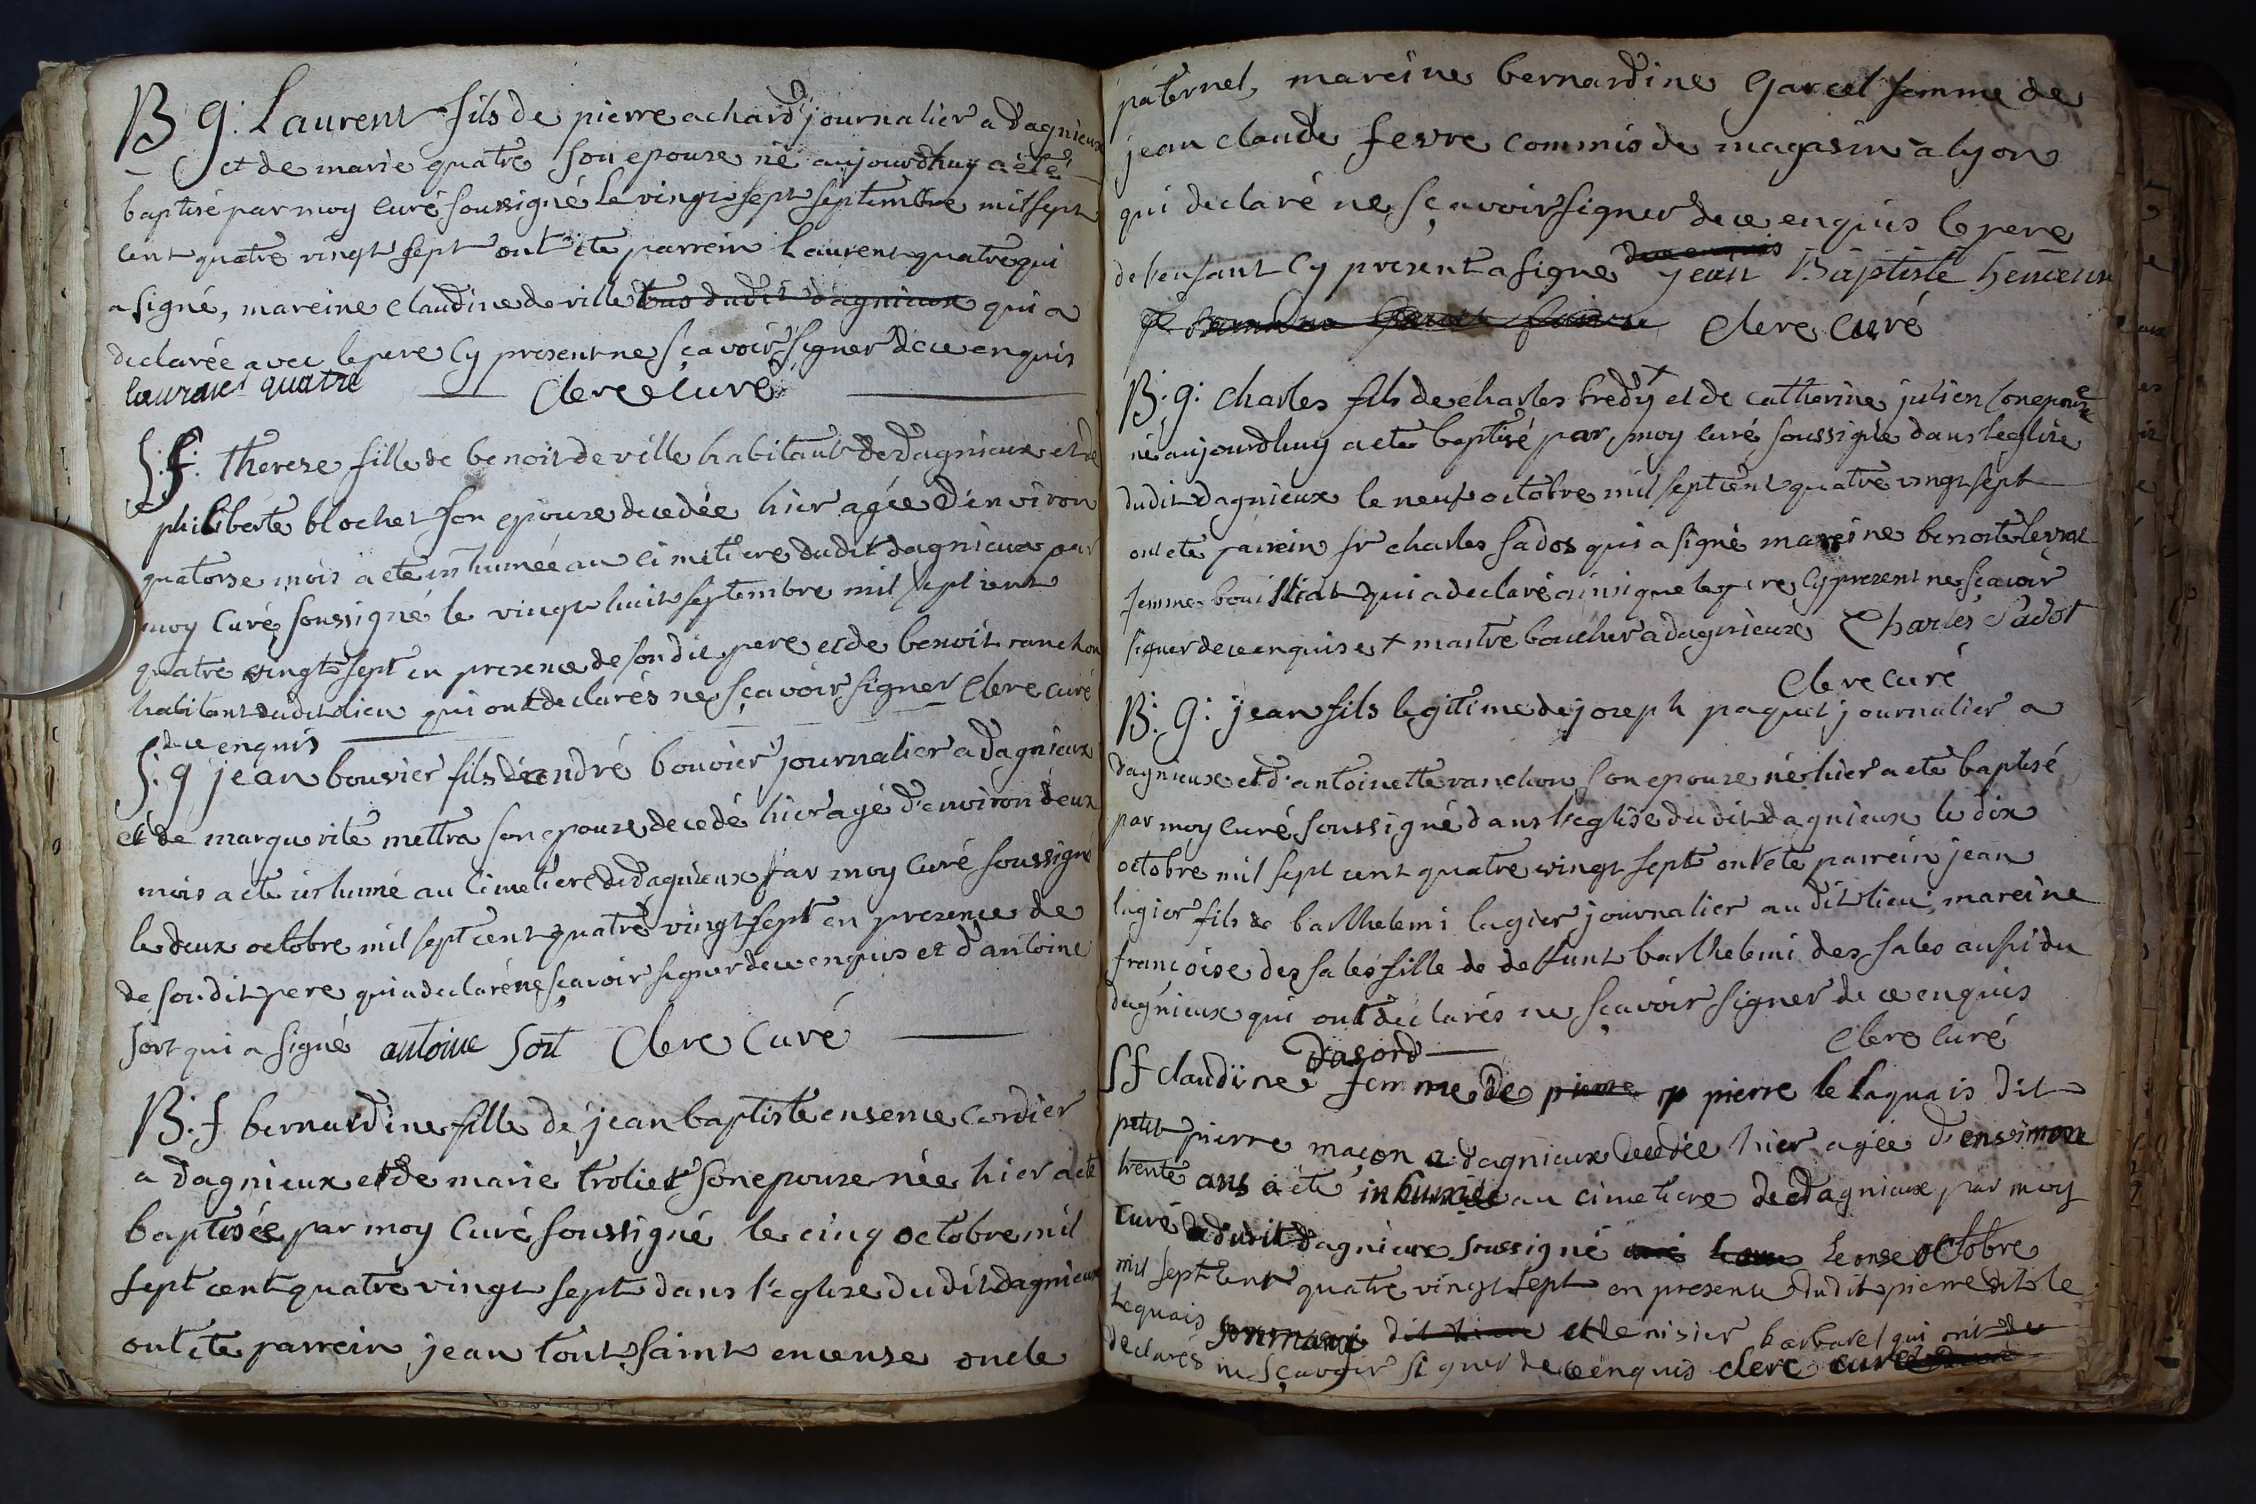 B g: Laurent fils de pierre achard journalier a dagnieux
et de marie quatre son epouse né aujourdhuy a été
baptisé par moy curé soussigné le vingt sept septembre mil sept
cent quatre vingt sept ont été parrein Laurent quatre qui
a signé, mareine claudine deville tous dudit dagnieux qui a
declarée avec le pere cy present ne sçavoir signer de ce enquis
quatre Clere Curé
S: f: therese fille de benoit deville habitant de dagnieux et de
philiberte blochet son epouse decedée hier agée d'environ
quatorse mois a eté inhumée au cimetiere dudit dagnieux par
moy Curé soussigné le vingt huit septembre mil sept cent
quatre vingt sept en presence de son dit pere et de benoit ranchon
habitant dudit lieu qui ont declarés ne sçavoir signer Clere curé
de ce enquis
S: g jean bouvier fils de andré bouvier journalier a dagnieux
et de marguerite mettra son epouse decedé hier agé d'environ deux
mois a eté inhumé au Cimetiere de dagnieux par moy Curé soussigné
le deux octobre mil sept cent quatre vingt sept en presence de
de son dit pere qui a declaré ne sçavoir signer de ce enquis et d'antoine
sort qui a signé antoine Sort Clere Curé
B: f bernardine fille de jean baptiste ensence cordier
a dagnieux et de marie troliet son epouse née hier a eté
baptisée par moy Curé soussigné le cinq octobre mil
sept cent quatre vingt sept dans l'eglise dudit dagnieux
ont eté parrein jean tout saint encense oncle
paternel, mareine bernardine Garcel femme de
jean claude fevre commis de magasin a lyon
qui declaré ne sçavoir signer de ce enquis le pere
de l'enfant cy present a signé de ce enquis jean Baptiste
Clere Curé
B: g: charles fils de charles bredy + et de catherine julien son epouse
né aujourdhuy a eté baptisé par moy curé soussigné dans l'eglise
dudit dagnieux le neuf octobre mil sept cent quatre vingt sept
ont eté pairein sr charles sados qui a signé mareine benoite
femme bouilliat qui a declaré ainsi que le pere cy present ne sçavoir
signer de ce enquise + maitre boucher a dagnieux Charles Sadot
Clere Curé
B: g: jean fils legitime de joseph paquet journalier a
dagnieux et d'antoinette ranchon son epouse né hier a eté baptisé
par moy Curé soussigné dans l'eglise dudit dagnieux le dix
octobre mil sept cent quatre vingt sept ont eté pairein jean
lugier fils de barthelemi lugier journalier au dit lieu, mareine
francoise des sales fille de deffunt barthelemi des sales aussi du
dagnieux qui ont declarés ne sçavoir signer de ce enquis
Clere Curé
dasord
S f claudine femme de pierre p pierre le laquais dit
petit pierre maçon a dagnieux decedée hier agée d'environ
trente ans a été inhumée au cimetiere de dagnieux par moy
Curé dudit dagnieux soussigné le onse octobre
mil sept cent quatre vingt sept en presence dudit pierre dit le
lequais et denisier barbaret qui ont
declarés ne sçavoir signer de ce enquis clere curé